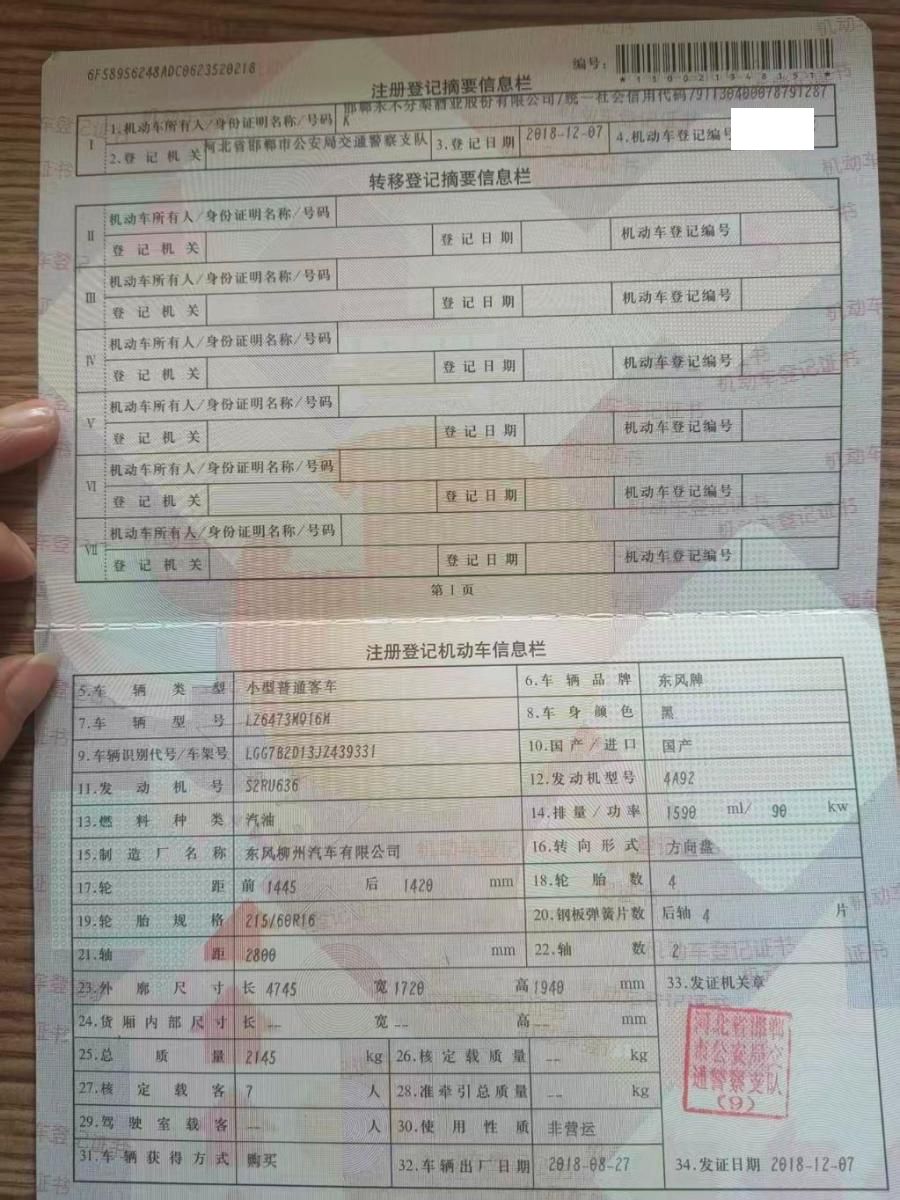 6F58956248ADC0623520218
编号:
注册登记摘要信息栏
I
1.机动车所有人/身份证明名称/号码 邯郸永不分梨酒业股份有限公司/统一社会信用代码/91130400078791287K
2.登记机关 河北省邯郸市公安局交通警察支队 3.登记日期 2018-12-07 4.机动车登记编号
转移登记摘要信息栏
II 机动车所有人/身份证明名称/号码
登记机关 登记日期 机动车登记编号
III 机动车所有人/身份证明名称/号码
登记机关 登记日期 机动车登记编号
IV 机动车所有人/身份证明名称/号码
登记机关 登记日期 机动车登记编号
V 机动车所有人/身份证明名称/号码
登记机关 登记日期 机动车登记编号
VI 机动车所有人/身份证明名称/号码
登记机关 登记日期 机动车登记编号
VII 机动车所有人/身份证明名称/号码
登记机关 登记日期 机动车登记编号
第1页
注册登记机动车信息栏
5.车辆类型 小型普通客车 6.车辆品牌 东风牌
7.车辆型号 LZ6473MQ16M 8.车身颜色 黑
9.车辆识别代号/车架号 LGG7B2D13JZ439331 10.国产/进口 国产
11.发动机号 S2RU636 12.发动机型号 4A92
13.燃料种类 汽油 14.排量/功率 1590 ml/ 90 kw
15.制造厂名称 东风柳州汽车有限公司 16.转向形式 方向盘
17.轮距 前 1445 后 1420 mm 18.轮胎数 4
19.轮胎规格 215/60R16 20.钢板弹簧片数 后轴 4 片
21.轴距 2800 mm 22.轴数 2
23.外廓尺寸 长 4745 宽 1720 高 1940 mm 33.发证机关章
24.货厢内部尺寸 长 -- 宽 -- 高 -- mm
25.总质量 2145 kg 26.核定载质量 -- kg
27.核定载客 7 人 28.准牵引总质量 -- kg
29.驾驶室载客 -- 人 30.使用性质 非营运
31.车辆获得方式 购买 32.车辆出厂日期 2018-08-27 34.发证日期 2018-12-07
河北省邯郸
市公安局交
通警察支队
(9)